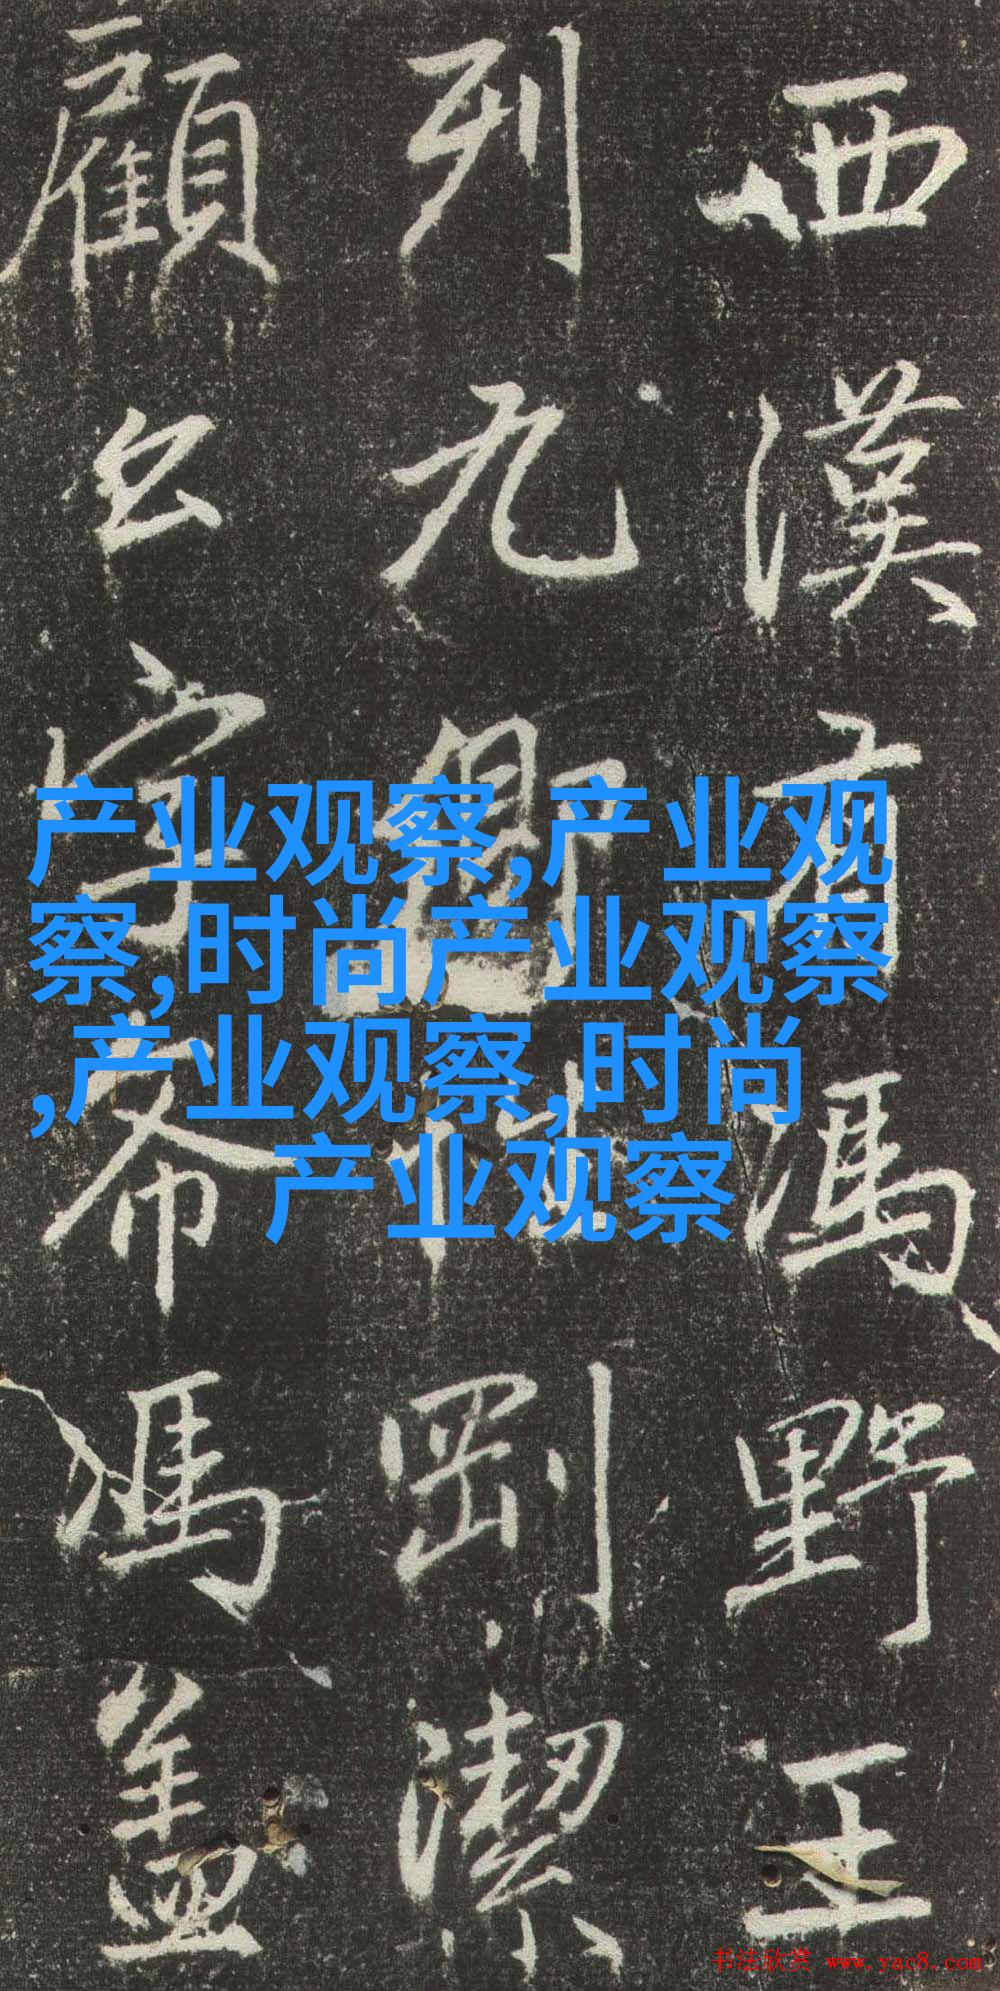 西漢有馮野王
列九卿剛潔
顧公字希馮蓋
产业观察,产业观
察,时尚产业观察
,产业观察,时尚
产业观察
书法欣赏 www.yac8.com